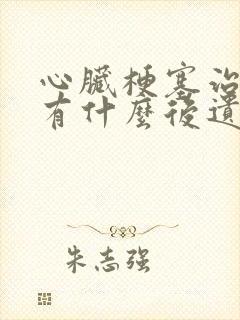 心臟梗塞治
有什麼後遺
朱志强